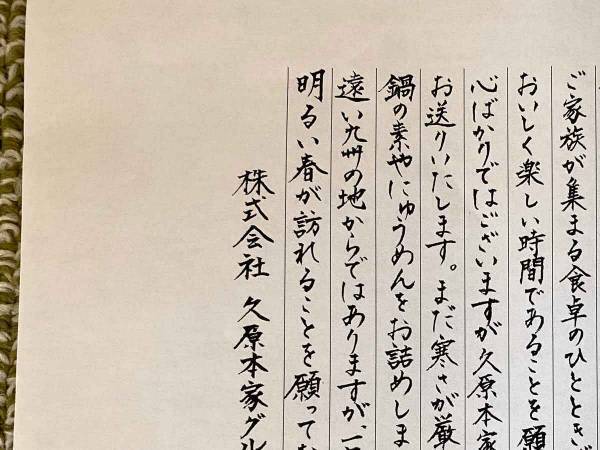 ご家族が集まる食卓のひとときが
おいしく楽しい時間であることを願
心ばかりではございますが久原本家
お送りいたします。まだ寒さが厳
鍋の素やにゅうめんをお詰めしま
遠い九州の地からではありますが、一日
明るい春が訪れることを願ってお
株式会社 久原本家グル